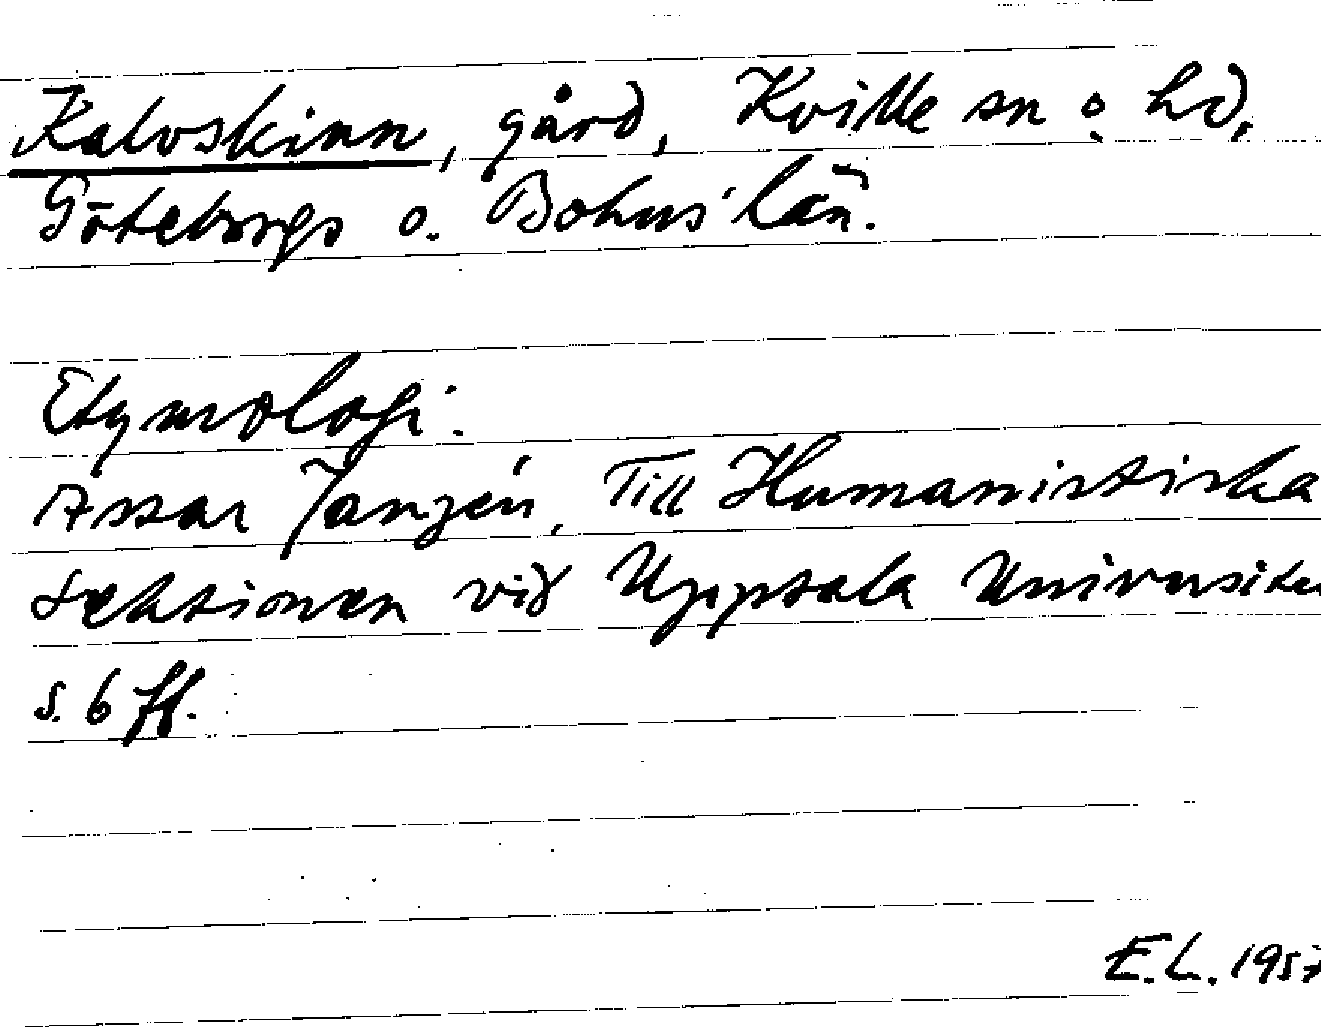 Kalvskinn, gård, Kville sn o. hd,
Göteborgs o. Bohus' län.
Etymologi:
Assar Janzén, Till Humanistiska
Sektionen vid Uppsala Universitet
s. 6 ff.
E.L. 1957